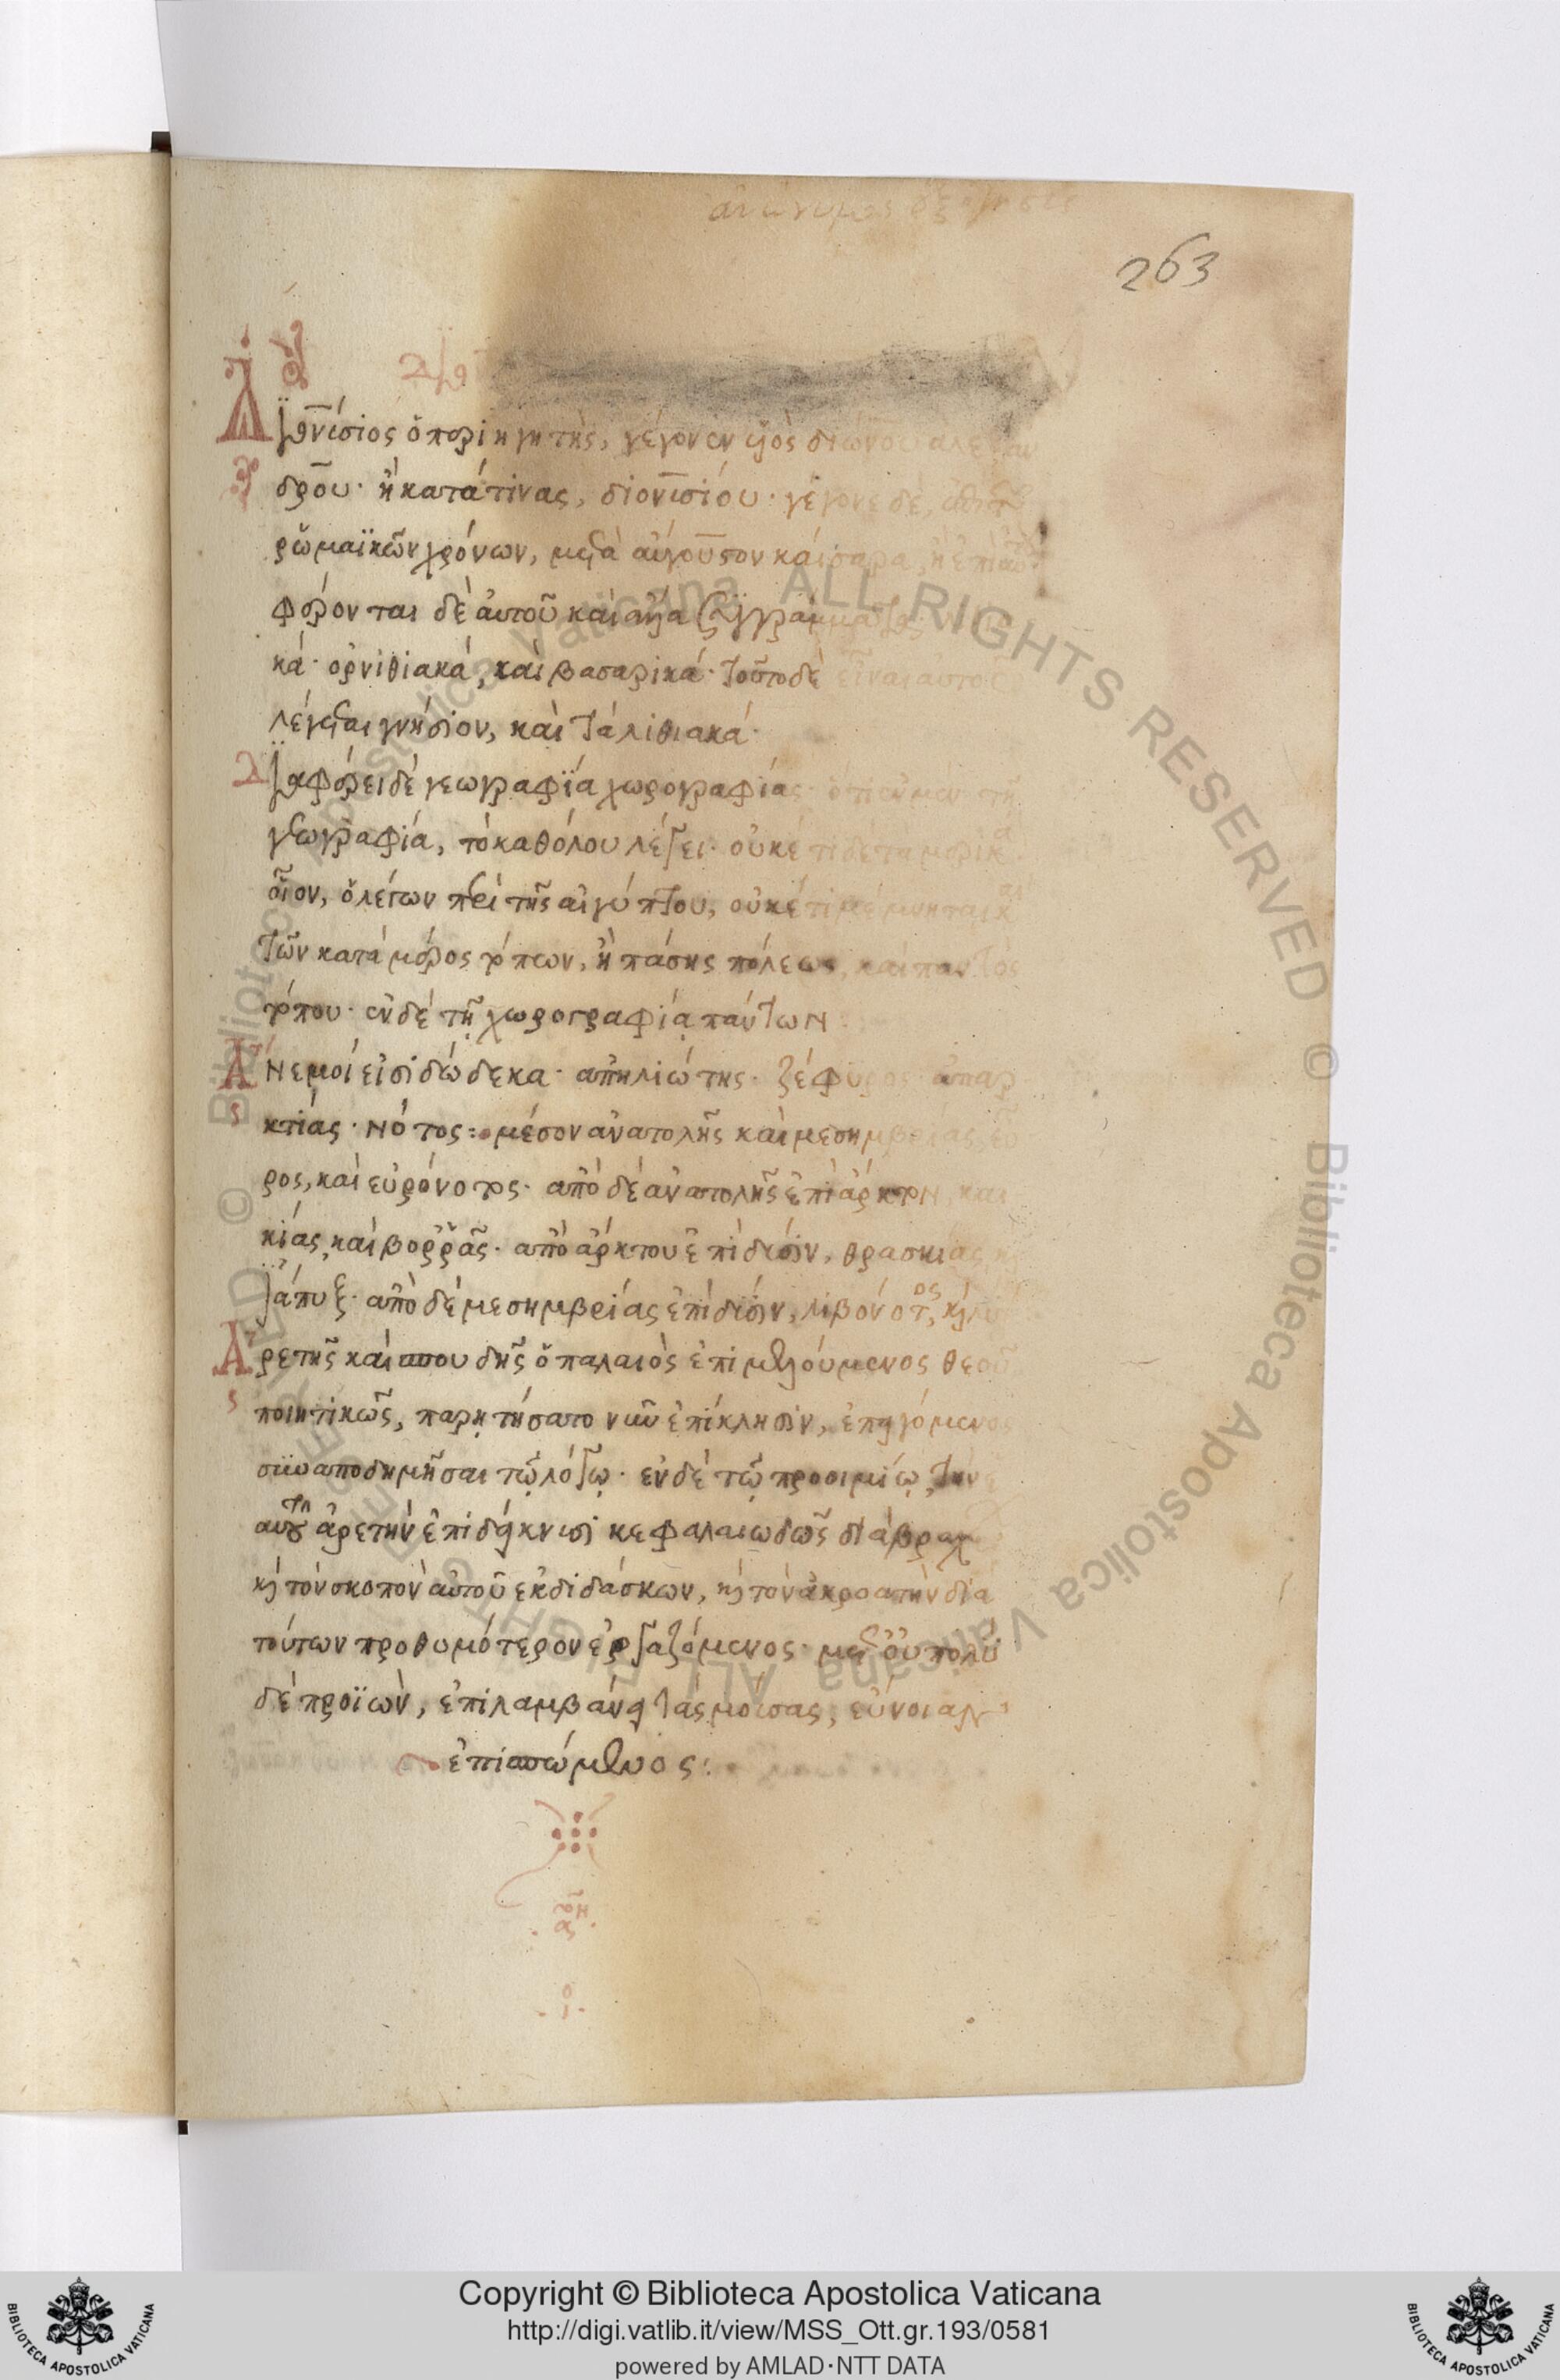 ἀνώνυμος ἐξήγησις
263
Διονύσιος ὁ περιηγητὴς, γέγονεν υἱὸς δίωνος ἀλεξαν
δρου· ἢ κατά τινας, διονυσίου· γέγονε δὲ,
ῥωμαϊκῶν χρόνων, μετὰ αὔγουστον καίσαρα, ἢ ἐπὶ
φέρονται δὲ αὐτοῦ καὶ ἄλλα συγγράμματα
κά· ὀρνιθιακά, καὶ βασαρικά· τοῦτο δὲ εἶναι αὐτοῦ
λέγεται γνήσιον, καὶ τὰ λιθιακά·
Διαφέρει δὲ γεωγραφία χωρογραφίας· ὅτι ἐν μὲν τῇ
γεωγραφίᾳ, τὸ καθόλου λέγει· οὐκέτι δὲ τὰ μερικά·
οἷον, ὁ λέγων περὶ τῆς αἰγύπτου, οὐκέτι μέμνηται καὶ
τῶν κατὰ μέρος τόπων, ἢ πάσης πόλεως, καὶ παντὸς
τόπου· ἐν δὲ τῇ χωρογραφίᾳ πάντων·
Ἄνεμοί εἰσι δώδεκα· ἀπηλιώτης· ζέφυρος· ἀπαρ
κτίας· νότος: μέσον ἀνατολῆς καὶ μεσημβρίας, εὖ
ρος, καὶ εὐρόνοτος· ἀπὸ δὲ ἀνατολῆς ἐπὶ ἄρκτον, και
κίας, καὶ βορρᾶς· ἀπὸ ἄρκτου ἐπὶ δύσιν, θρασκίας
ἰάπυξ· ἀπὸ δὲ μεσημβρίας ἐπὶ δύσιν, λιβόνοτος, καὶ λίψ
Ἀρετῆς καὶ σπουδῆς ὁ παλαιὸς ἐπιμελούμενος θεοῦ
ποιητικῶς, παρῃτήσατο νῦν ἐπίκλησιν, ἐπειγόμενος
συναποδημῆσαι τῷ λόγῳ· ἐν δὲ τῷ προοιμίῳ, τήν
αὐτοῦ ἀρετὴν ἐπιδείκνυσι κεφαλαιωδῶς διὰ βραχ
καὶ τὸν σκοπὸν αὐτοῦ ἐκδιδάσκων, καὶ τὸν ἀκροατὴν διὰ
τούτων προθυμότερον ἐργαζόμενος· μετ' οὐ πολὺ
δὲ προϊὼν, ἐπιλαμβάνει τὰς μούσας, εὔνοιαν
ἐπισπώμενος:
Copyright © Biblioteca Apostolica Vaticana
http://digi.vatlib.it/view/MSS_Ott.gr.193/0581
powered by AMLAD·NTT DATA
BIBLIOTECA APOSTOLICA VATICANA
BIBLIOTECA APOSTOLICA VATICANA
© Biblioteca Apostolica Vaticana ALL RIGHTS RESERVED © Biblioteca Apostolica Vaticana ALL RIGHTS RESERVED